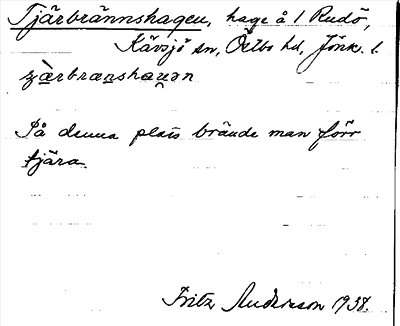 Tjärbrännshagen, hage å 1 Rudö,
Kävsjö sn, Östbo hd, Jönk. l.
På denna plats brände man förr
tjära.
Fritz Andersson 1938.